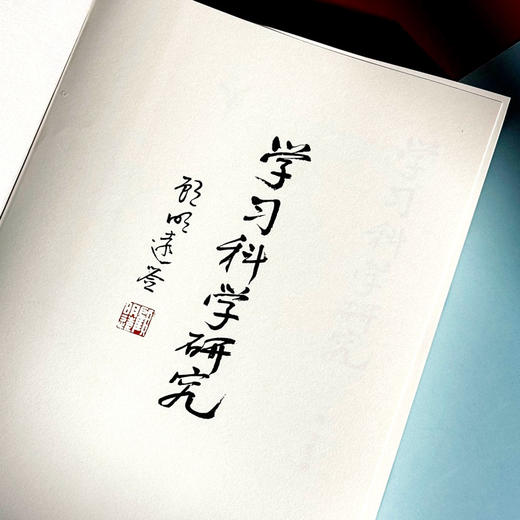 学习科学研究
顾明远签